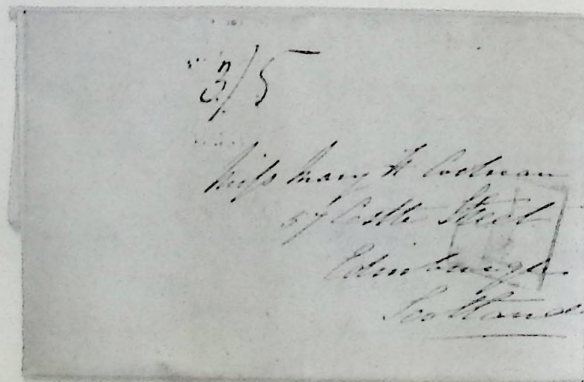 3/5
Miss Mary H Cochran
57 Castle Street
Edinburgh
Scotland